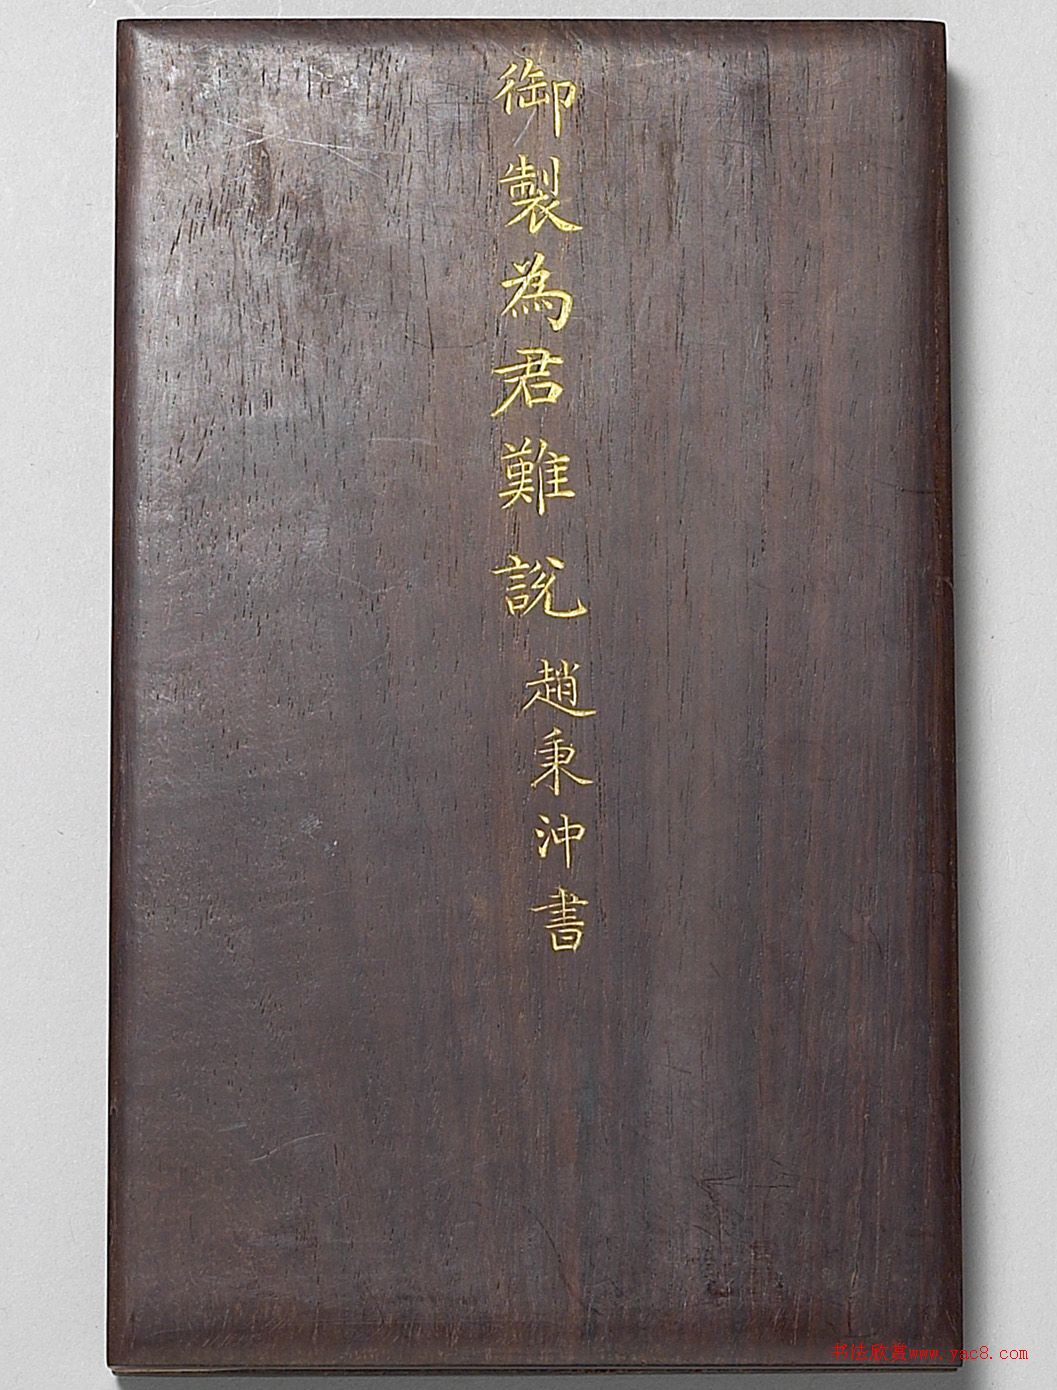 御製為君難說
趙秉沖書
书法欣赏www.yac8.com